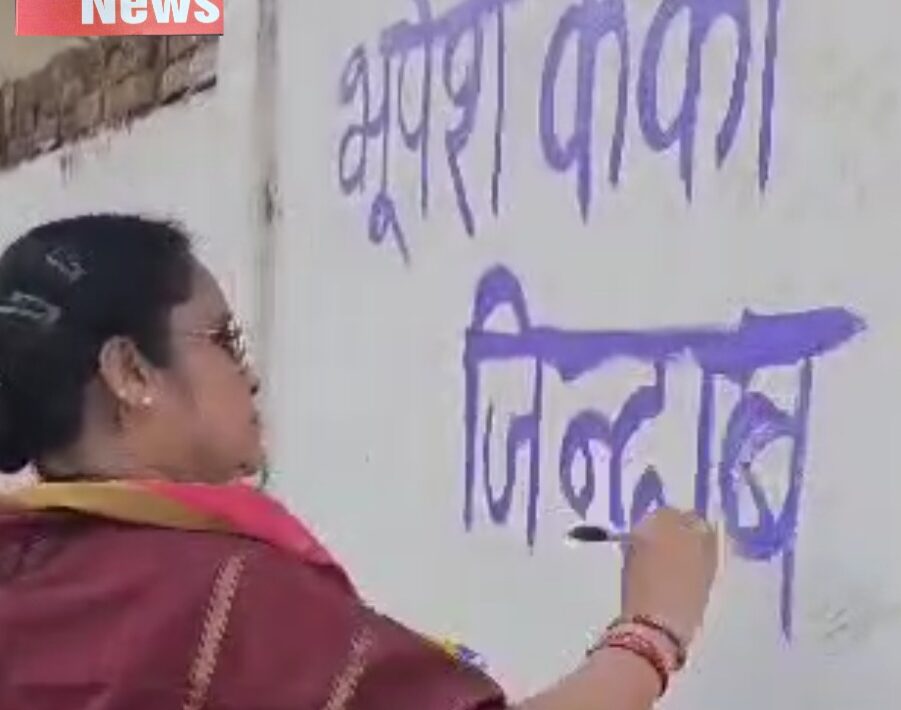 News
भूपेश कका
जिन्दाब